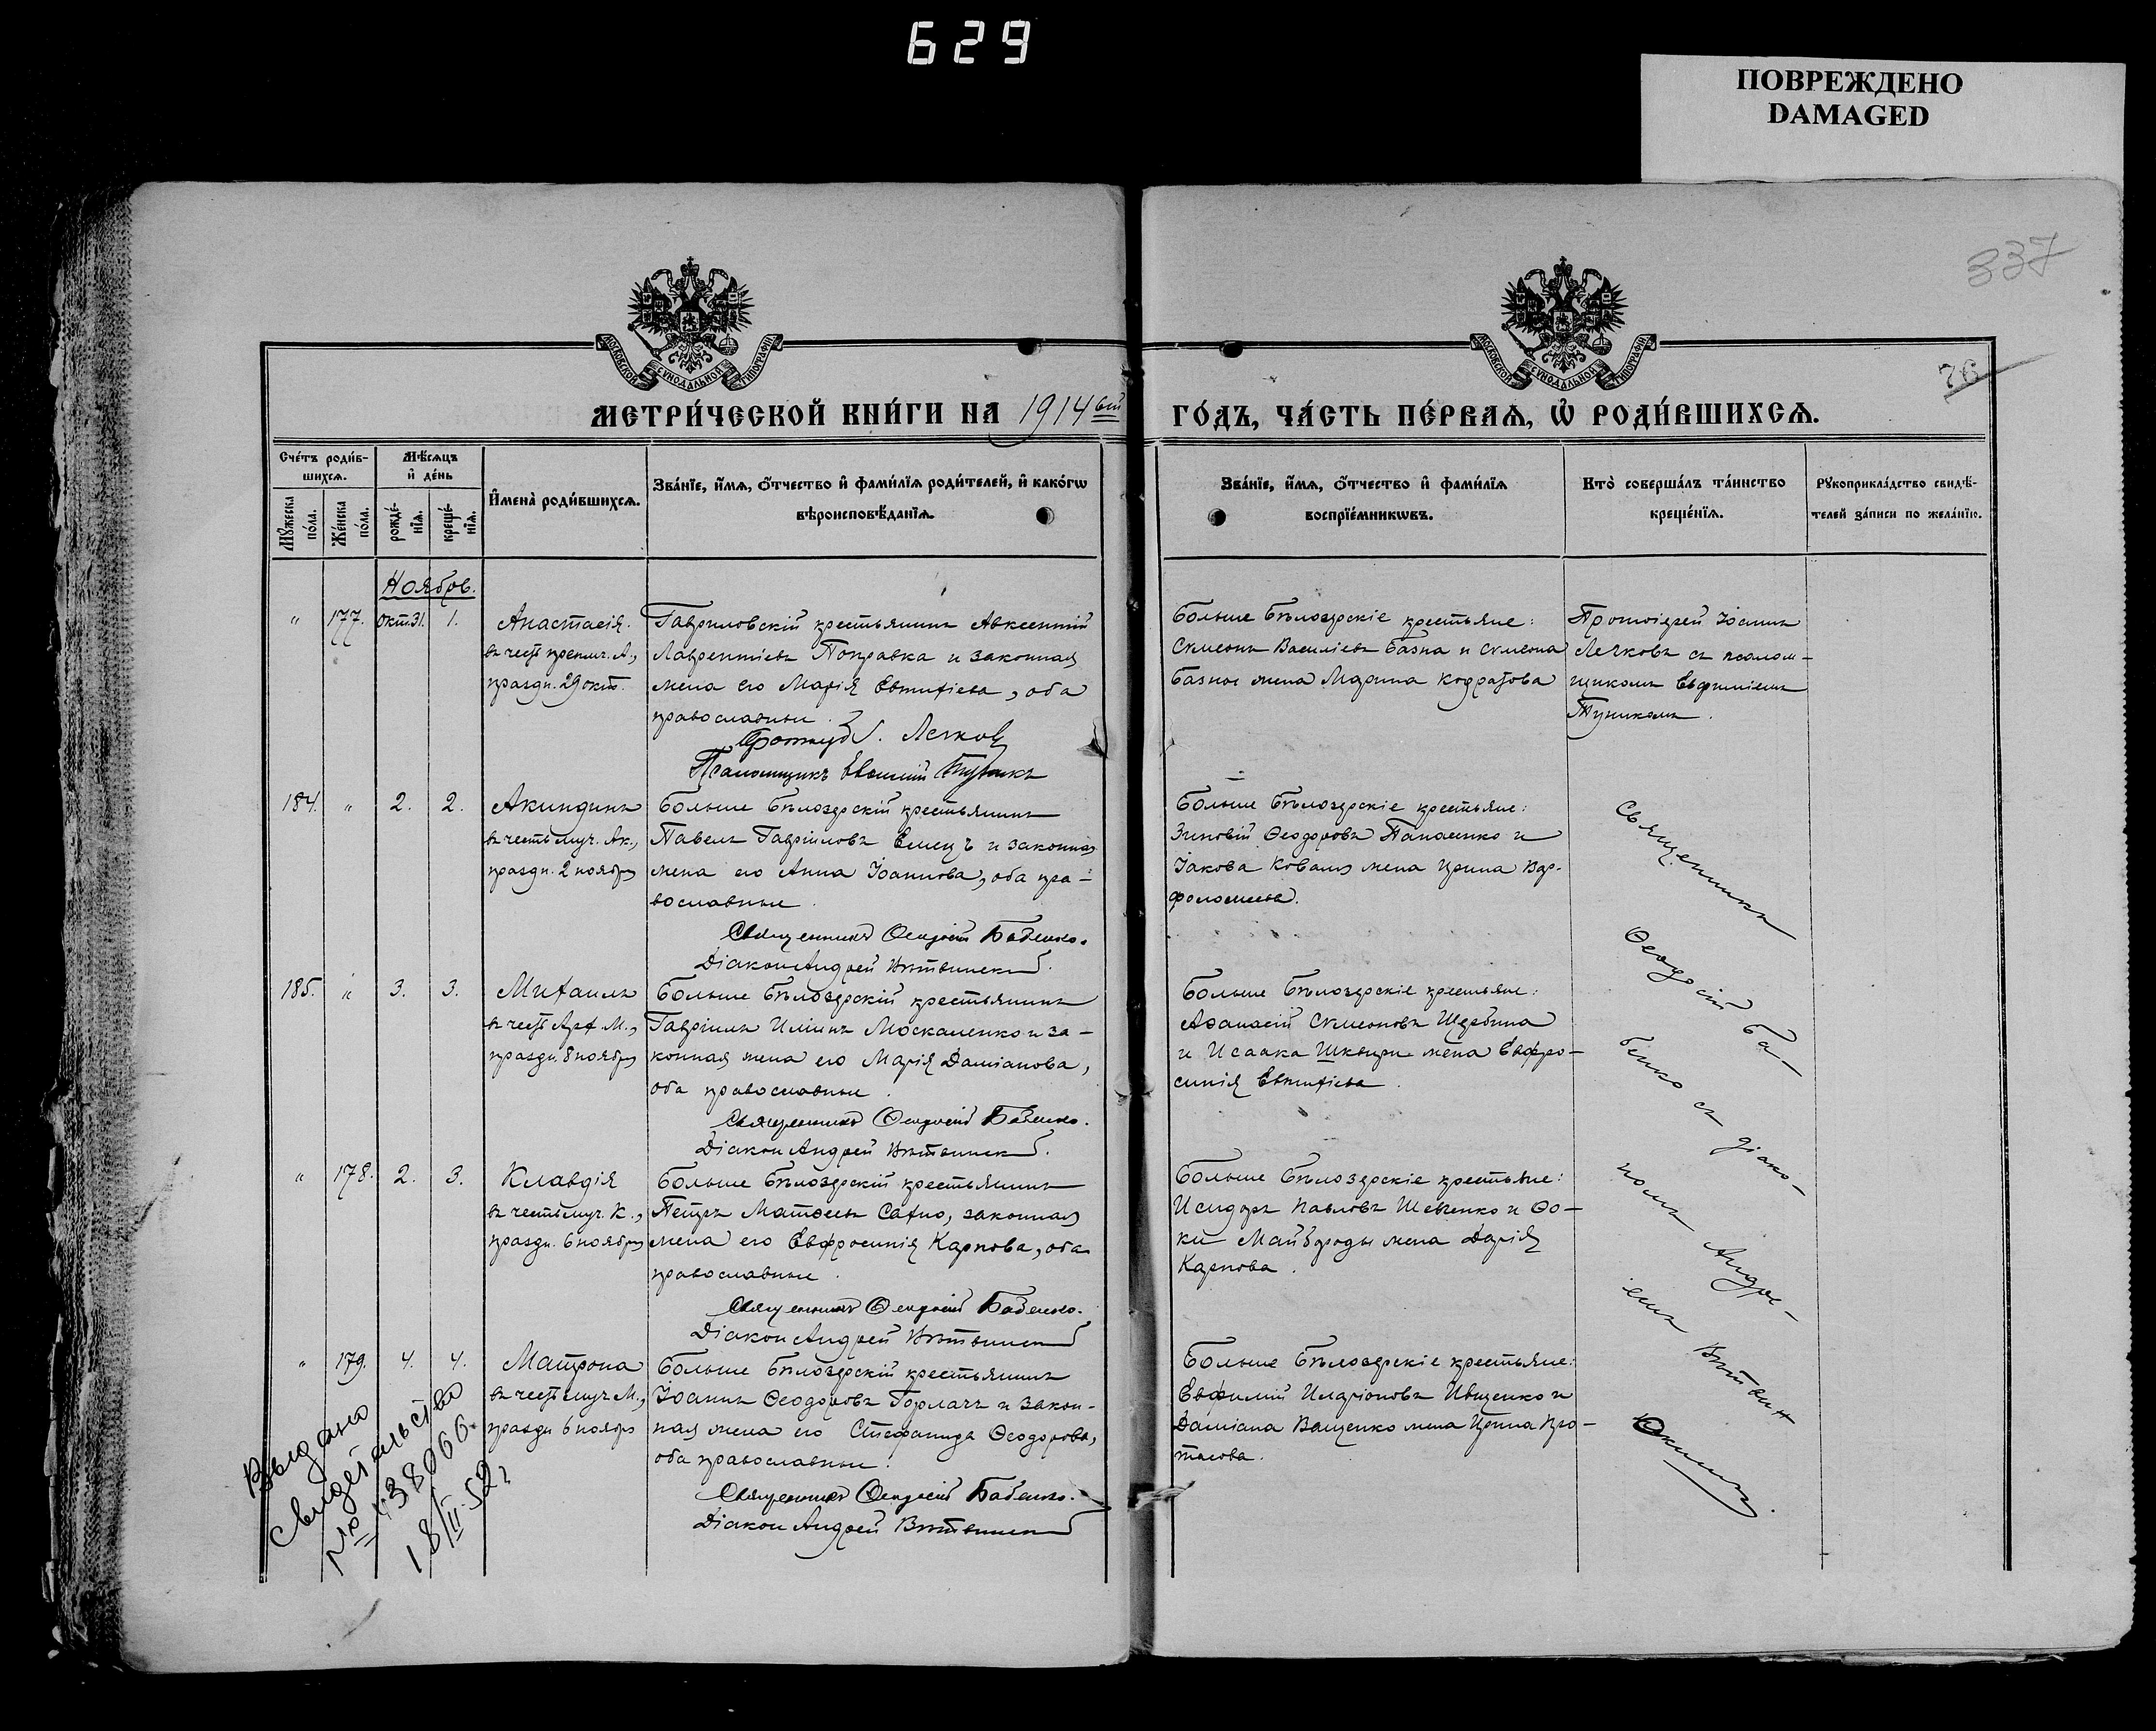 629
ПОВРЕЖДЕНО
DAMAGED
337
76
МОСКОВСКОЙ СѴНОДАЛЬНОЙ ТИПОГРАФІИ
МОСКОВСКОЙ СѴНОДАЛЬНОЙ ТИПОГРАФІИ
МЕТРИ́ЧЕСКОЙ КНИ́ГИ НА 1914 ый
ГО́ДЪ, ЧА́СТЬ ПЕ́РВАѦ, Ѡ РОДИ́ВШИХСѦ.
Сче́тъ роди́в-
шихсѧ.
Мѣ́сѧцъ
и де́нь
Мꙋ́жеска по́ла.
Же́нска по́ла.
рожде́-нїѧ.
креще́-нїѧ.
И҆мена̀ роди́вшихсѧ.
Зва́нїе, и҆́мѧ, ѻ҆́тчество и҆ фами́лїѧ роди́телей, и҆ како́гѡ
вѣроисповѣ́данїѧ.
Зва́нїе, и҆́мѧ, ѻ҆́тчество и҆ фами́лїѧ
воспрїе́мникѡвъ.
Кто̀ соверша́лъ та́инство
креще́нїѧ.
Рꙋкоприкла́дство свидѣ́-
телей за́писи по жела́нїю.
Ноябрь.
" 177. Окт. 31. 1. Анастасія
въ честь препмч. А.,
праздн. 29 окт.
Гавриловскій крестьянинъ Авксентій
Лаврентіевъ Поправка и законная
жена его Марія Евтихіева, оба
православные.
Протоіер. І. Лечковъ
Псаломщикъ Евфимій Туникъ
Больше Бѣлозерскіе крестьяне:
Симеонъ Василіевъ Базна и Симеона
Базны жена Марина Кодратова
Протоіерей Іоаннъ
Лечковъ съ псалом-
щикомъ Евфиміемъ
Туникомъ.
184. " 2. 2. Акиндинъ
въ честь муч. Ак.,
праздн. 2 ноября
Больше Бѣлозерскій крестьянинъ
Павелъ Гавріиловъ Емецъ и законная
жена его Анна Іоаннова, оба пра-
вославные.
Священникъ Ѳеодосій Бабенко.
Діаконъ Андрей Вѣтвинскій.
Больше Бѣлозерскіе крестьяне:
Зиновій Ѳеодоровъ Панасенко и
Іакова Коваля жена Ирина Вар-
фоломеева.
185. " 3. 3. Михаилъ
въ честь Арх. М.,
праздн. 8 ноября
Больше Бѣлозерскій крестьянинъ
Гавріилъ Иліинъ Москаленко и за-
конная жена его Марія Даміанова,
оба православные.
Священникъ Ѳеодосій Бабенко.
Діаконъ Андрей Вѣтвинскій.
Больше Бѣлозерскіе крестьяне:
Аѳанасій Симеоновъ Щербина
и Исаака Шквыри жена Евфро-
синія Евтихіева.
" 178. 2. 3. Клавдія
въ честь муч. К.,
праздн. 6 ноября
Больше Бѣлозерскій крестьянинъ
Петръ Матѳеевъ Сахно, законная
жена его Евфросинія Карпова, оба
православные.
Священникъ Ѳеодосій Бабенко.
Діаконъ Андрей Вѣтвинскій
Больше Бѣлозерскіе крестьяне:
Исидоръ Павловъ Шевченко и Ѳо-
ки Майбороды жена Дарія
Карпова.
" 179. 4. 4. Матрона
въ честь муч. М.,
праздн. 6 ноября
Больше Бѣлозерскій крестьянинъ
Іоаннъ Ѳеодоровъ Горлачъ и закон-
ная жена его Стефанида Ѳеодорова,
оба православные.
Священникъ Ѳеодосій Бабенко.
Діаконъ Андрей Вѣтвинскій
Больше Бѣлозерскіе крестьяне:
Евфимій Иларіоновъ Иващенко и
Даміана Ващенко жена Ирина Про-
тасова.
Священникъ
Ѳеодосій Ба-
бенко съ діако-
номъ Андре-
емъ Вѣтвин
скимъ.
Выдано
свидетельство
18/II-52 г